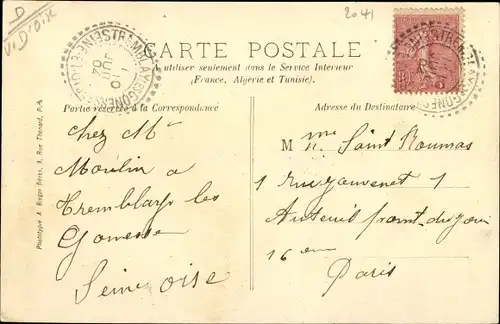 D
V. D'Oise
2041
CARTE POSTALE
utiliser seulement dans le Service Intérieur
(France, Algérie et Tunisie).
Partie réservée à la Correspondance
Adresse du Destinataire
Chez Mr
Moulin a
Tremblay les
Gonesse
Seine oise
Mme Saint Roumas
1 rue 1
Auteuil
16 em
Paris
Phototypie A. Breger frères, 9, Rue Thénard, Paris